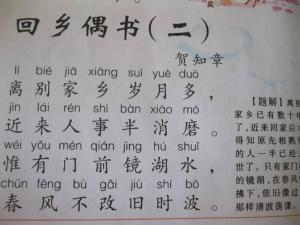 回乡偶书(二)
贺知章
lí bié jiā xiāng suì yuè duō
离别家乡岁月多，
jìn lái rén shì bàn xiāo mó
近来人事半消磨。
wéi yǒu mén qián jìng hú shuǐ
惟有门前镜湖水，
chūn fēng bù gǎi jiù shí bō
春风不改旧时波。
【题解】离
家乡已有数十
了，近来回家
得知原先相熟
的人一半已经
世了。只有家门
的镜湖，在春风
拂下，依旧像过
那样清波荡漾。